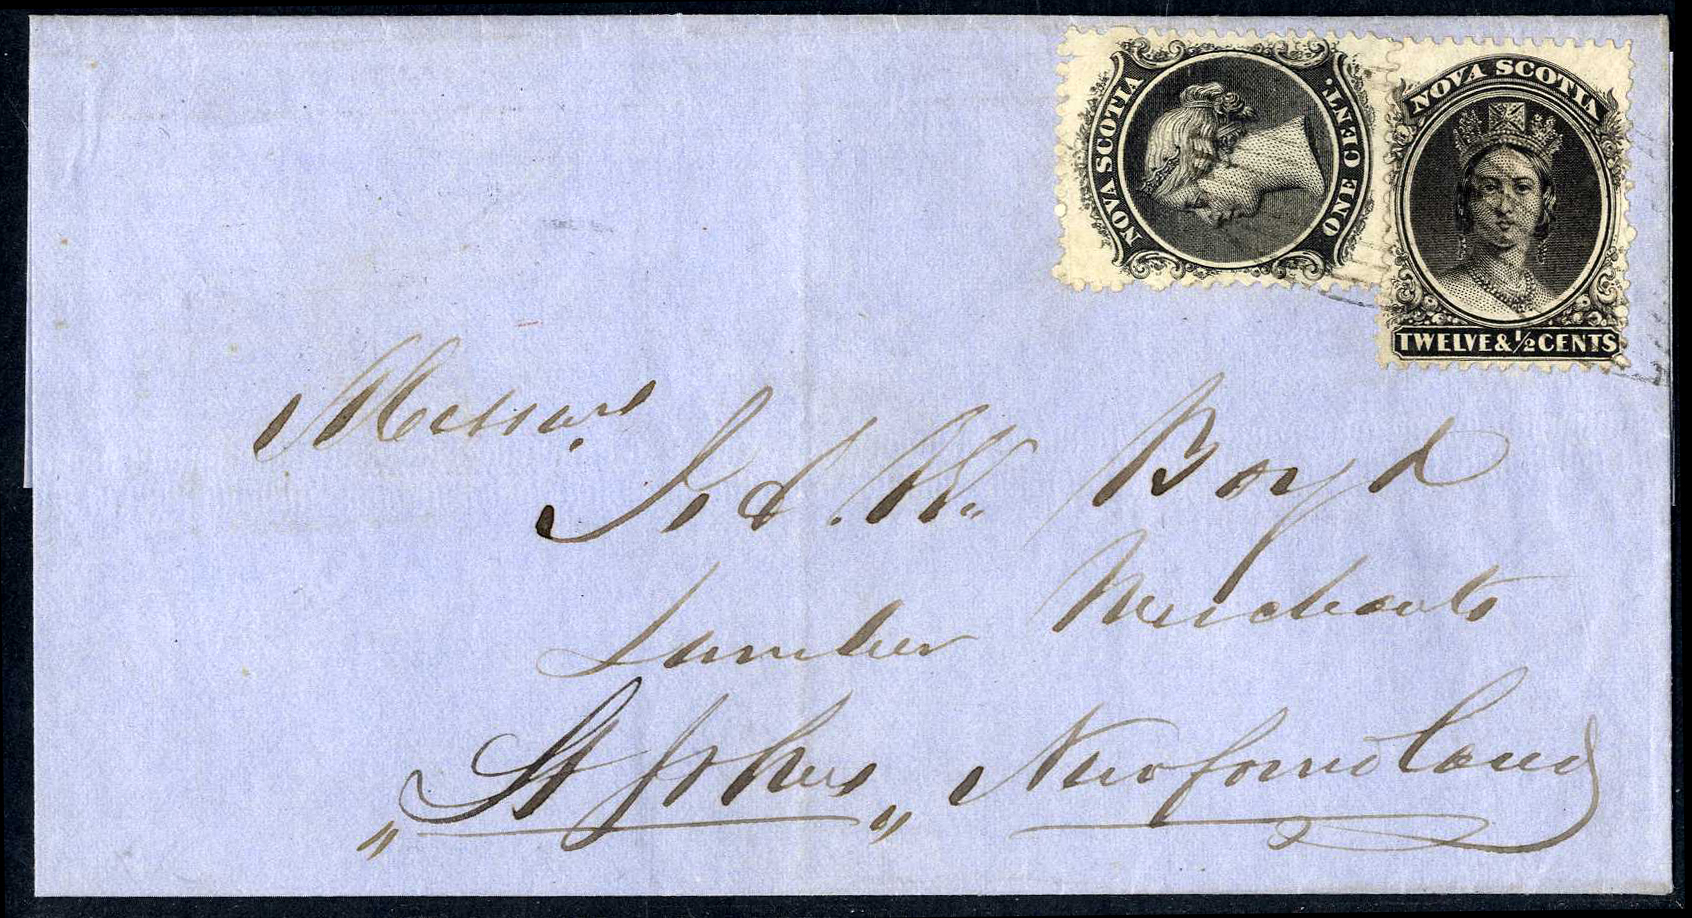 NOVA SCOTIA
ONE CENT.
NOVA SCOTIA
TWELVE & ½ CENTS
Messrs
W. Boyd
Lumber Merchants
"St Johns" Newfoundland